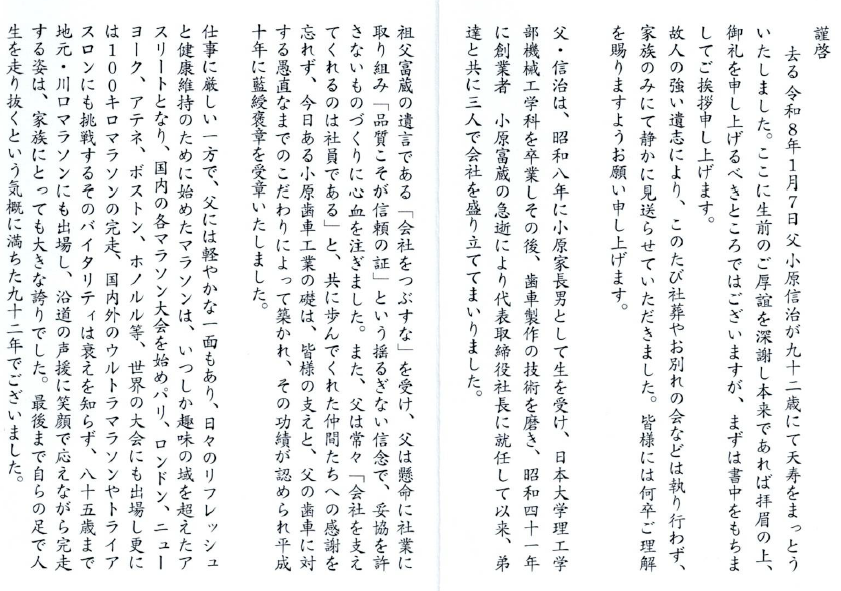 謹啓
去る 令和8年1月7日 父小原信治が九十二歳にて天寿をまっとう
いたしました。ここに生前のご厚誼を深謝し本来であれば拝眉の上、
御礼を申し上げるべきところではございますが、まずは書中をもちま
してご挨拶申し上げます。
故人の強い遺志により、このたび社葬やお別れの会などは執り行わず、
家族のみにて静かに見送らせていただきました。皆様には何卒ご理解
を賜りますようお願い申し上げます。
父・信治は、昭和八年に小原家長男として生を受け、日本大学理工学
部機械工学科を卒業しその後、歯車製作の技術を磨き、昭和四十一年
に創業者 小原富蔵の急逝により代表取締役社長に就任して以来、弟
達と共に三人で会社を盛り立ててまいりました。
祖父富蔵の遺言である「会社をつぶすな」を受け、父は懸命に社業に
取り組み「品質こそが信頼の証」という揺るぎない信念で、妥協を許
さないものづくりに心血を注ぎました。また、父は常々「会社を支え
てくれるのは社員である」と、共に歩んでくれた仲間たちへの感謝を
忘れず、今日ある小原歯車工業の礎は、皆様の支えと、父の歯車に対
する愚直なまでのこだわりによって築かれ、その功績が認められ平成
十年に藍綬褒章を受章いたしました。
仕事に厳しい一方で、父には軽やかな一面もあり、日々のリフレッシュ
と健康維持のために始めたマラソンは、いつしか趣味の域を超えたア
スリートとなり、国内の各マラソン大会を始め、パリ、ロンドン、ニュー
ヨーク、アテネ、ボストン、ホノルル等、世界の大会にも出場し更に
は100キロマラソンの完走、国内外のウルトラマラソンやトライア
スロンにも挑戦するそのバイタリティは衰えを知らず、八十五歳まで
地元・川口マラソンにも出場し、沿道の声援に笑顔で応えながら完走
する姿は、家族にとっても大きな誇りでした。最後まで自らの足で人
生を走り抜くという気概に満ちた九十二年でございました。